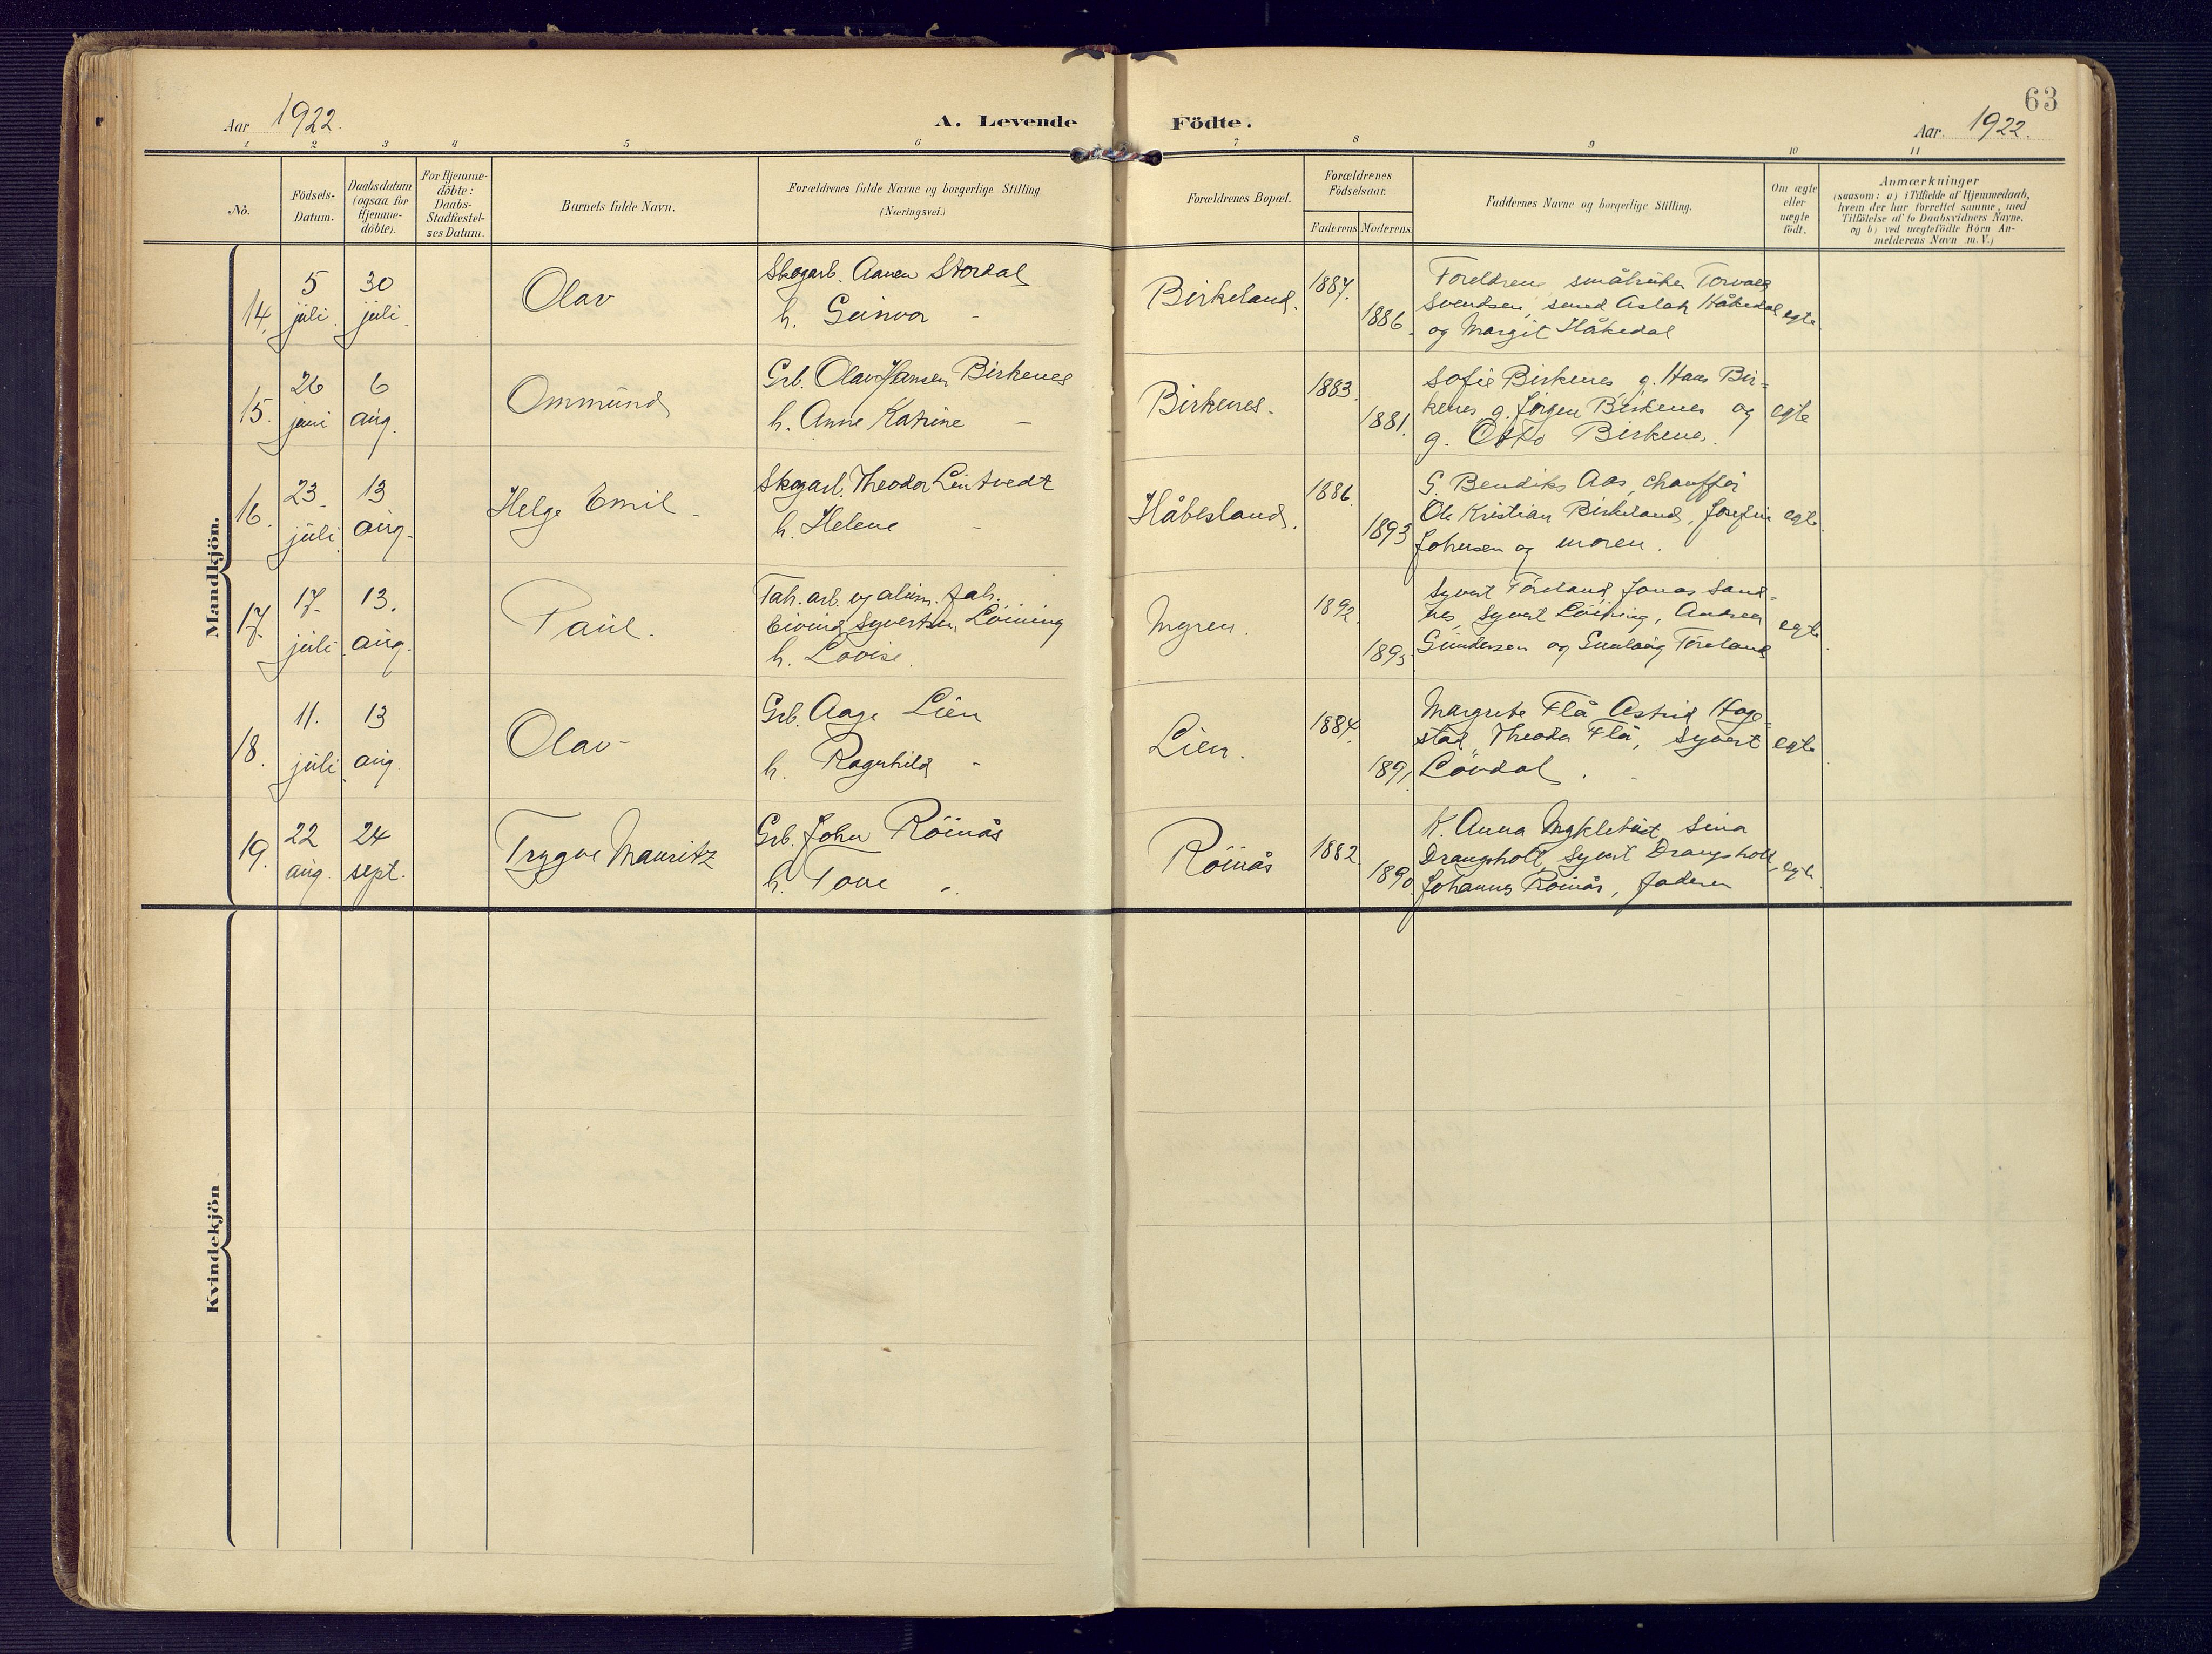 63
Aar 1922.
A. Levende Födte.
Aar. 1922.
1 2 3 4 5 6 7 8 9 10 11
No.
Födsels-
Datum.
Daabsdatum
(ogsaa for
Hjemme-
döbte).
For Hjemme-
döbte:
Daabs-
Stadfæstel-
ses Datum.
Barnets fulde Navn.
Forældrenes fulde Navne og borgerlige Stilling
(Næringsvei.)
Forældrenes Bopæl.
Forældrenes
Födselsaar.
Faderens Moderens.
Faddernes Navne og borgerlige Stilling.
Om ægte
eller
uægte
födt.
Anmærkninger
(saasom: a) i Tilfælde af Hjemmedaab,
hvem der har forrettet samme, med
Tilföielse af to Daabsvidners Navne.
og b) ved uægtefödte Börn An-
melderens Navn m. V.)
Mandkjön.
14. 5 juli 30 juli
Olav
Skogarb. Aanen Stordal
h. Gunvor -
Birkeland.
1887. 1886.
Foreldrene, småbruker Torvald
Svendsen, smed Aslak Håkedal
og Margit Håkedal
egte
15. 26 juni 6 aug.
Ommund
Grb. Olav Hansen Birkenes
h. Anne Katrine -
Birkenes.
1883. 1881.
Sofie Birkenes g. Hans Bir-
kenes g. Jörgen Birkenes og
g. Otto Birkenes.
egte
16. 23. juli 13 aug.
Helge Emil
Skogarb. Theodor Lindtvedt
h. Helene -
Håbesland.
1886. 1893
G. Bendiks Aas, chaufför
Ole Kristian Birkeland, Josefine
Johnsen og moren.
egte
17. 17. juli 13. aug.
Paul.
Fab. arb. og alum. fab.
Eivind Syvertsen Löining
h. Lovise.
Myren.
1892. 1893
Syvert Töreland, Jonas Sand-
nes, Syvert Löining, Andrea
Gundersen og Gunlaug Töreland
egte
18. 11. juli 13 aug.
Olav
Grb. Aage Lien
h. Ragnhild -
Lien.
1884. 1891.
Margrete Flå Astrid Hage-
stad, Theodor Flå, Syvert
Lövdal.
egte
19. 22 aug. 24 sept.
Trygve Mauritz
Grb. John Röinås
h. Tone "
Röinås
1882 1890
K. Anna Myklebust, Sina
Drangsholt, Syvert Drangsholt,
Johannes Röinås, faderen
egte
Kvindekjön